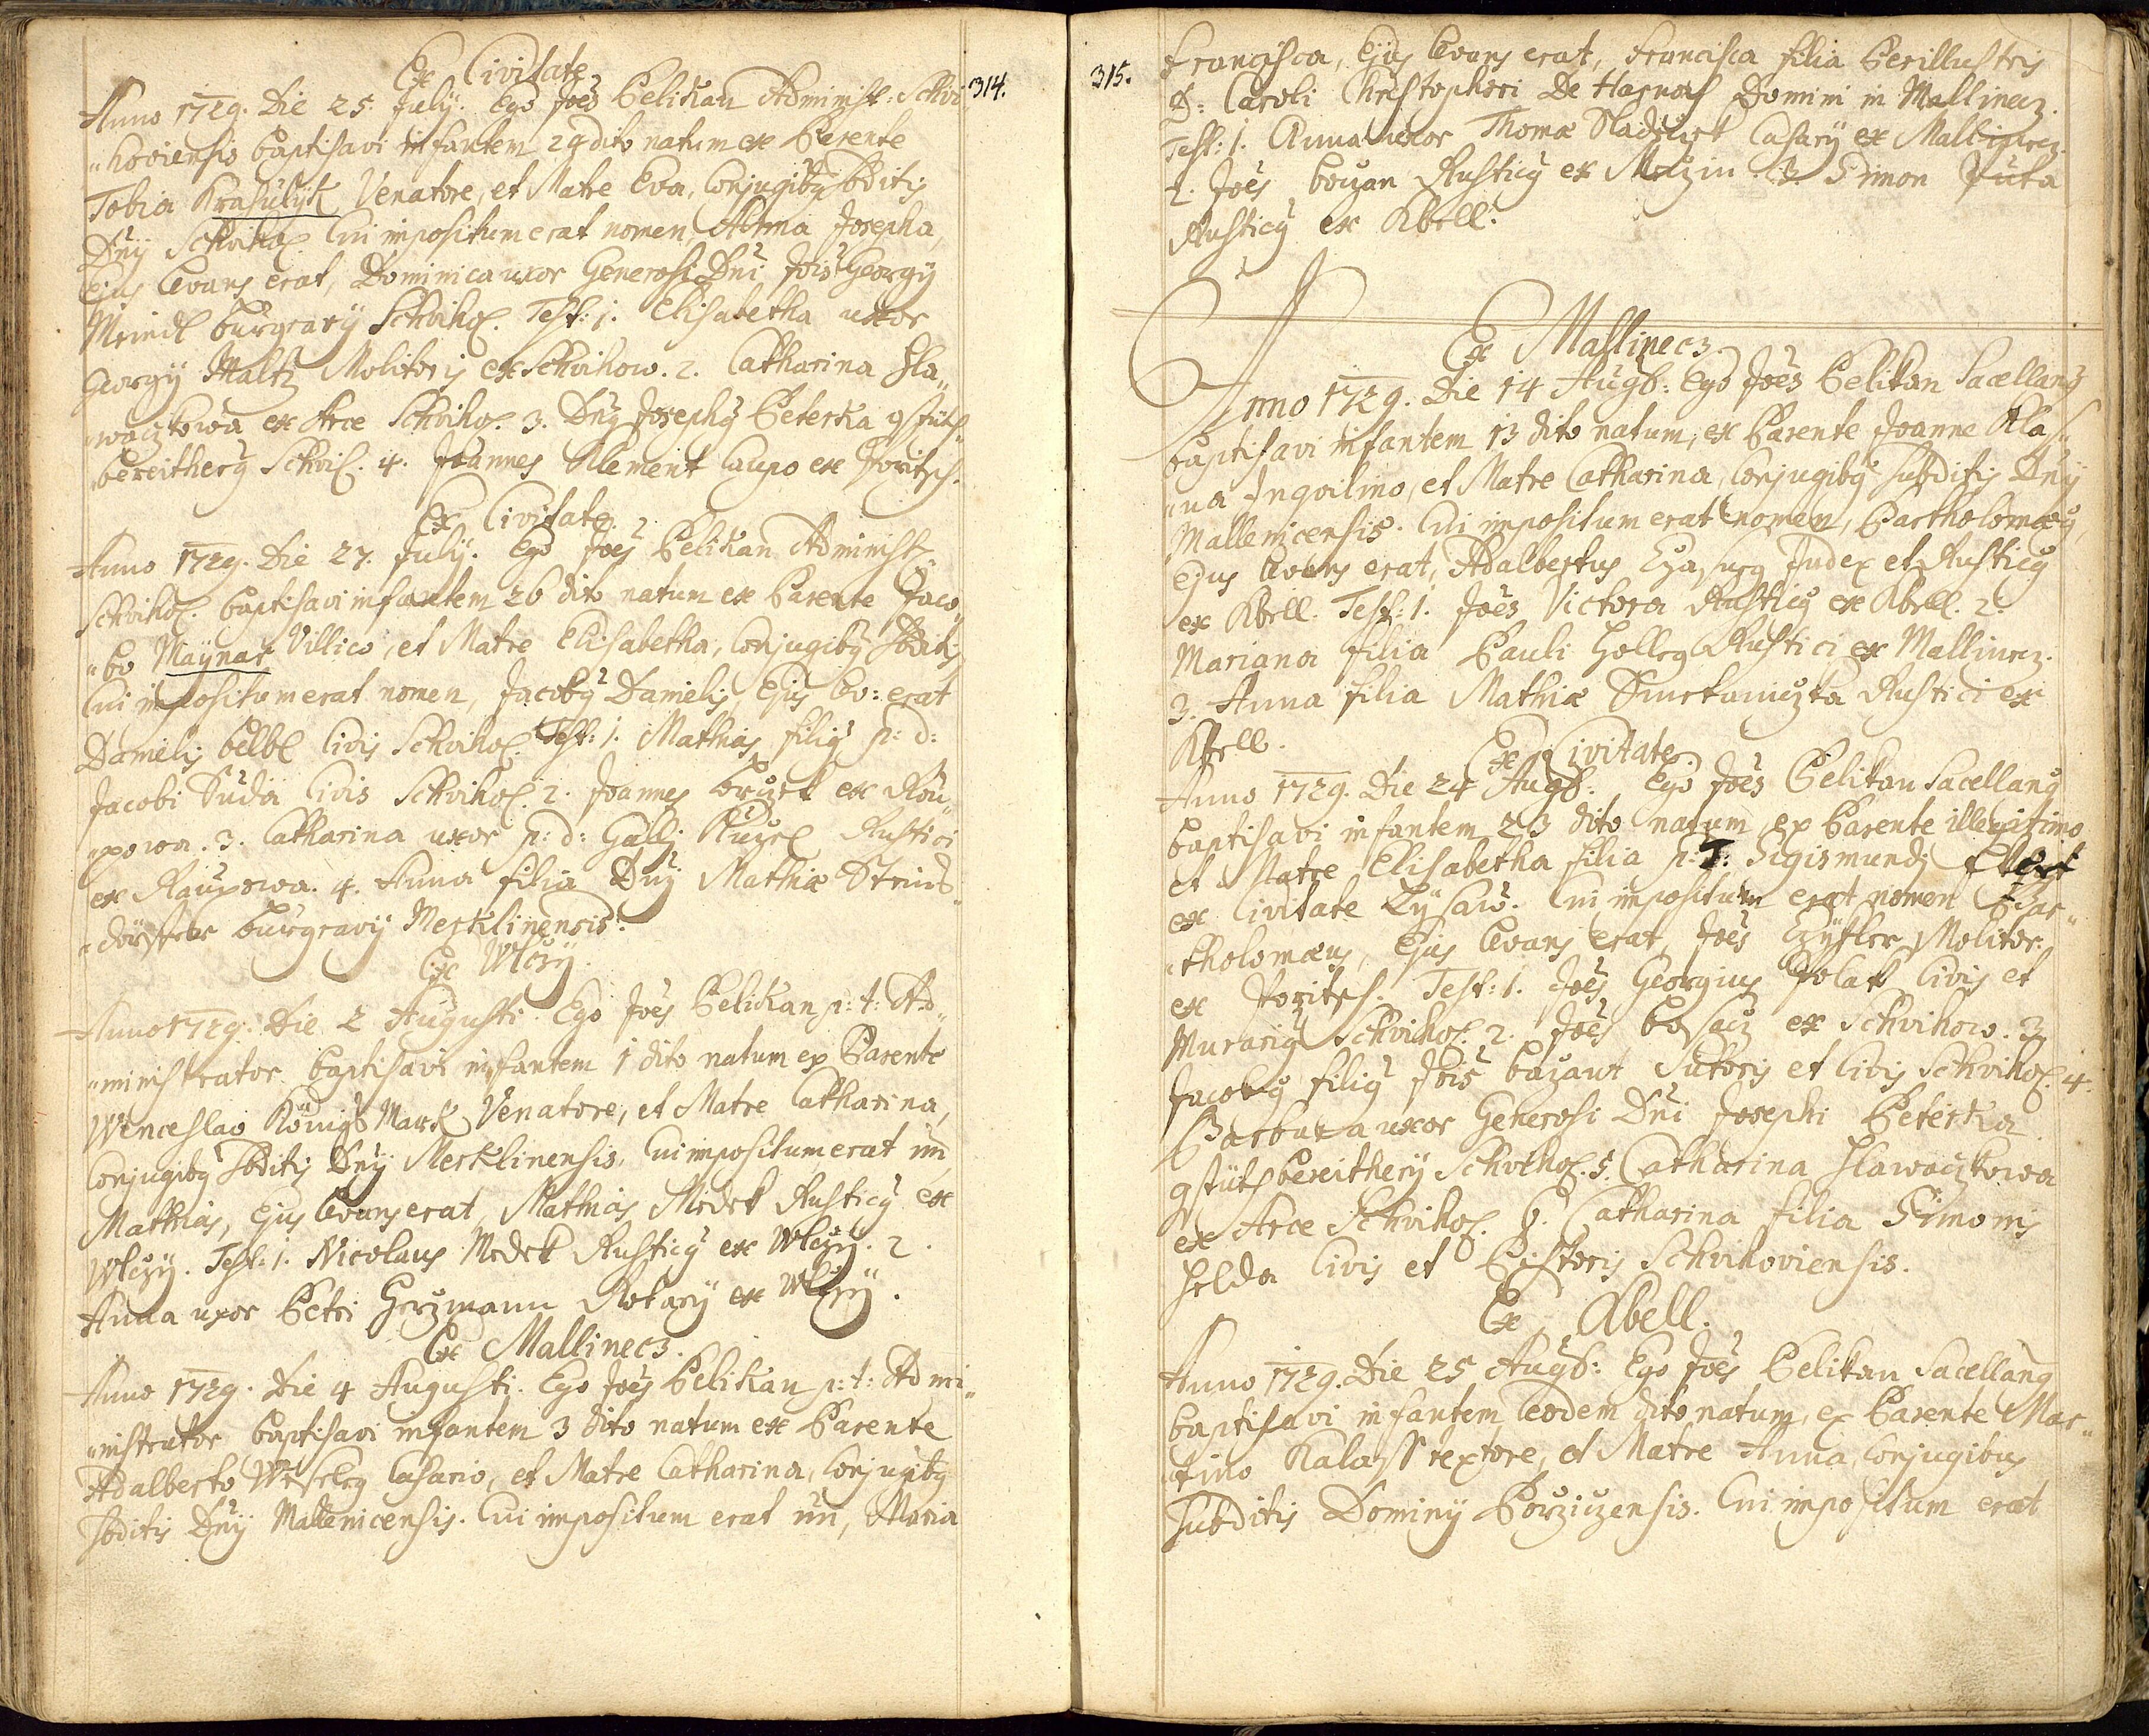 314.
Ex Civitate
Anno 1729. Die 25. July. Ego Joes Pelikan Administ: Schvi-
"hoviensis baptisavi infantem 24 dito natum ex Parente
Tobia Venatore, et Matre Eva, Conjugiby sbditis
Dny Schvihol. Cui impositum erat nomen, Anna Josepha,
Ejus levans erat, Dominica uxor Generosi Dni Jois Georgy
Meindl burgravy Schvihol. Test: 1. Elisabetha uxor
Georgy Maltz Molitoris ex Schvihow. 2. Catharina Hla"
"waczkowa ex Arce Schvihol. 3. Dny Josephy Peterka gstüts
bereithery Schvil. 4. Joannes Klement Caupo ex Poritsch.
Ex Civitate.
Anno 1729. Die 27. July. Ego Joes Pelikan Administ.
Schvihol. baptisavi infantem 26 dito natum ex Parente Jaco"
"bo Maÿnar Villico, et Matre Elisabetha, Conjugiby sbditis
Cui impositum erat nomen, Jacoby Danielis, Ejus lev: erat
Danielis belbl Civis Schvihol. Test: 1. Mathias filiy p: d:
Jacobi Suda Civis Schvihol. 2. Joannes ex Rou"
"powa. 3. Catharina uxor p: d: Galli Rustici
ex Raupowa. 4. Anna filia Dny Mathiæ Streins"
"dörffer burgravy Merklinensis.
Ex Wlczy.
Anno 1729. Die 2 Augusti. Ego Joes Pelikan p: t: Ad"
"ministrator baptisavi infantem 1 dito natum ex Parente
Wenceslao Königs Mark Venatore, et Matre Catharina,
Conjugiby sbditis Dny Merklinensis. Cui impositum erat nn
Mathias, Ejus levans erat, Mathias Medek Rusticy ex
Wlczy. Test: 1. Nicolaus Medek Rusticy ex Wlczy. 2.
Anna uxor Petri Herzmann Rotary ex Wlczy.
Ex Mallinecz.
Anno 1729. Die 4 Augusti. Ego Joes Pelikan p: t: Admi"
"nistrator baptisavi infantem 3 dito natum ex Parente
Adalberto Wesseleg Casario, et Matre Catharina, Conjugiby
sbditis Dny Mallenicensis. Cui impositum erat nn, Maria
315.
Francisca, Ejus levans erat, Francisca filia Perillustris
D: Caroli Christopheri De Domini in Mallinecz.
Test: 1. Anna uxor Thomæ Sladeczek Casary ex Mallinecz.
2. Joes bouzan Rusticy ex Merzin 3. Simon Juta
Rusticy ex Kbell.
Ex Mallinecz.
Anno 1729. Die 14 Augb: Ego Joes Pelikan Sacellany
baptisavi infantem 13 dito natum, ex Parente Joanne Kla"
"na Inqvilino, et Matre Catharina, Conjugiby subditis Dny
Mallenicensis. Cui impositum erat nomen, Bartholomæy,
Ejus levans erat, Adalbertus Judex et Rusticy
ex Kbell. Test: 1. Joes Victora Rusticy ex Kbell. 2.
Mariana filia Pauli Holleg Rustici ex Mallinecz.
3. Anna filia Mathiæ Smetaniczka Rustici ex
Kbell.
Ex Civitate.
Anno 1729. Die 24 Augb: Ego Joes Pelikan Sacellany
baptisavi infantem 23 dito natum ex Parente illegitimo
et Matre Elisabetha filia p: T: Sigismundi
ex Civitate Lysaw. Cui impositum erat nomen Bar"
"tholomæus, Ejus levans erat, Joes Molitor
ex Poritsch. Test: 1. Joes Georgius Polak Civis et
Murariy Schvihol. 2. Joes ex Schvihow. 3.
Jacoby filiy Jois bazant Sutoris et Civis Schvihol. 4.
Barbara uxor Generosi Dni Josephi Peterka
gstütsbereithery Schvihol. 5. Catharina Hlawaczkowa
ex Arce Schvihol. 6. Catharina filia Simonis
Helda Civis et Pistoris Schvihoviensis.
Ex Kbell.
Anno 1729. Die 25 Augb: Ego Joes Pelikan Sacellany
baptisavi infantem eodem dito natum, ex Parente Mar"
"tino Kalass textore, et Matre Anna, Conjugibus
subditis Dominy Porziczensis. Cui impositum erat